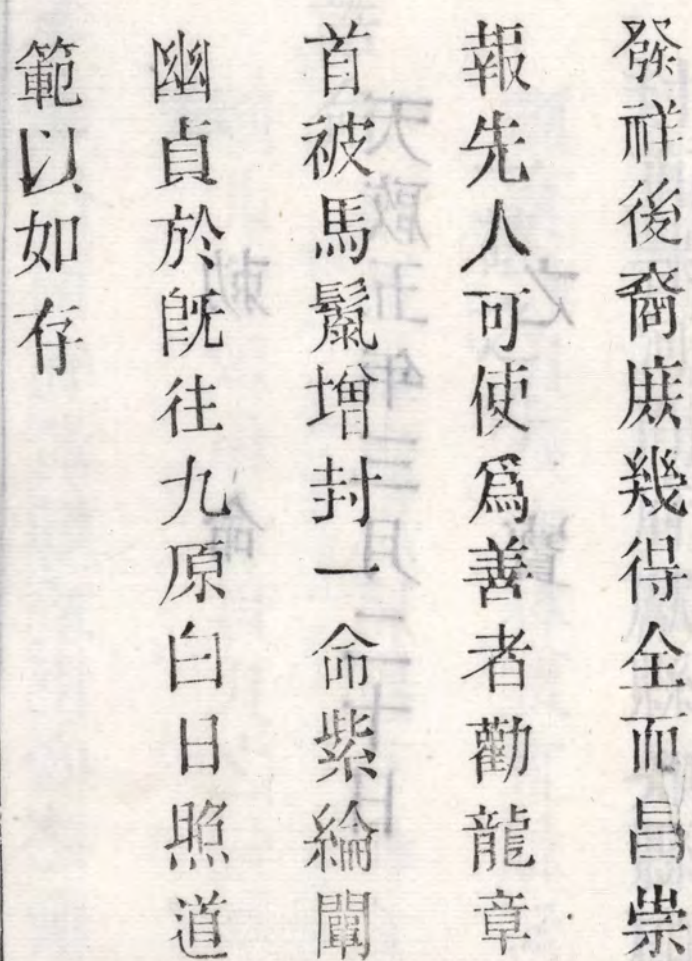 發祥後裔庻幾得全而昌崇
報先人可使爲善者勸龍章
首被馬鬛增封一命紫綸闡
幽貞於旣徃九原白日照道
範以如存